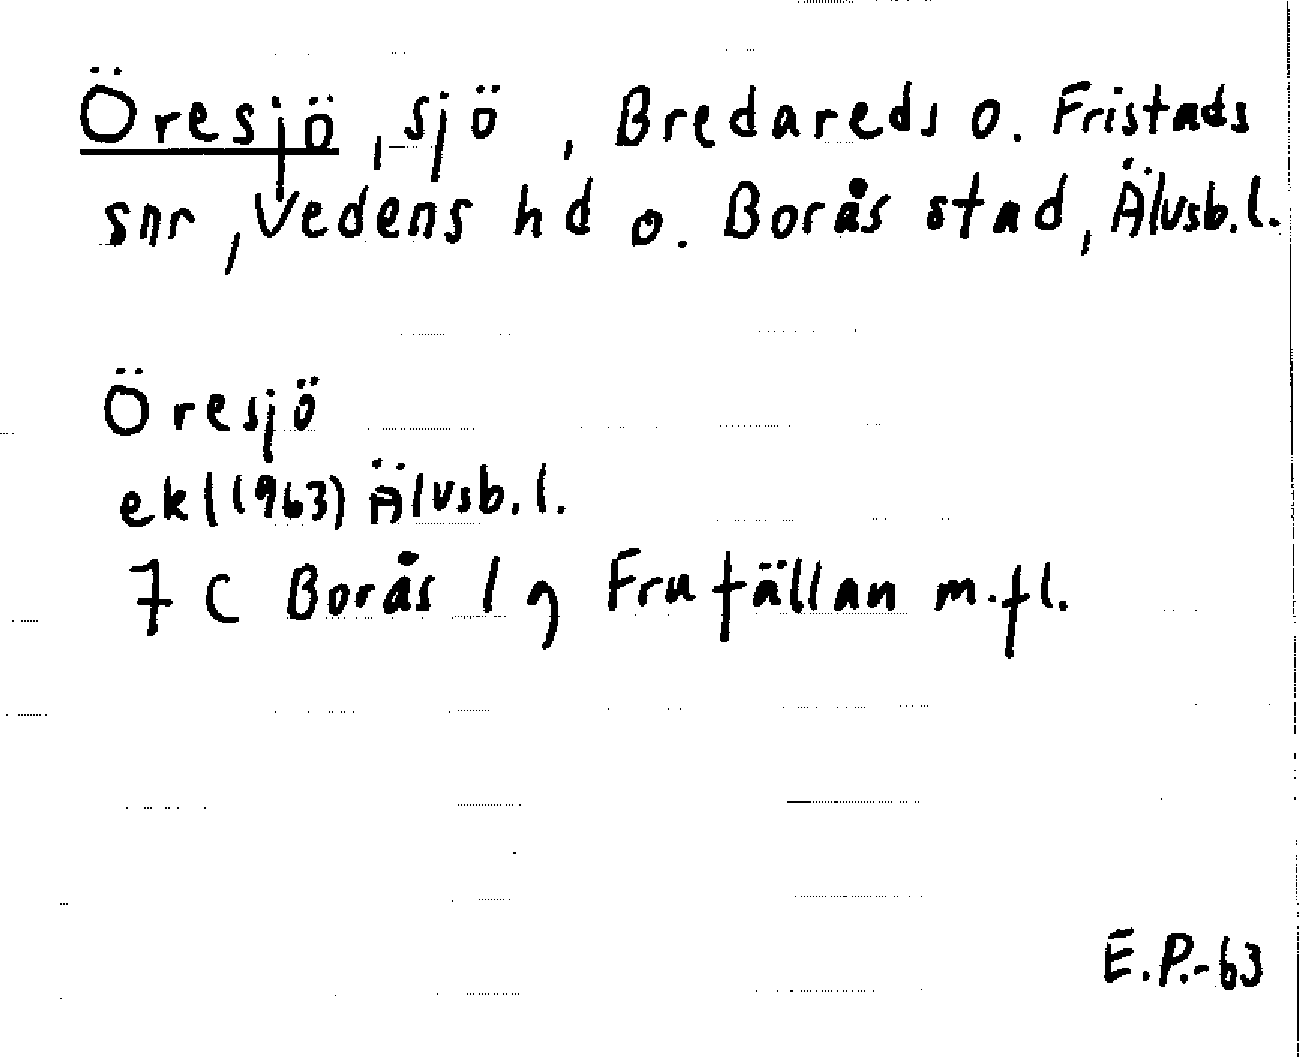 Öresjö, sjö, Bredareds o. Fristads
snr, Vedens hd o. Borås stad, Älvsb.l.
Öresjö
ekl (1963) Älvsb.l.
7 C Borås 1 g Frufällan m.fl.
E.P.-63